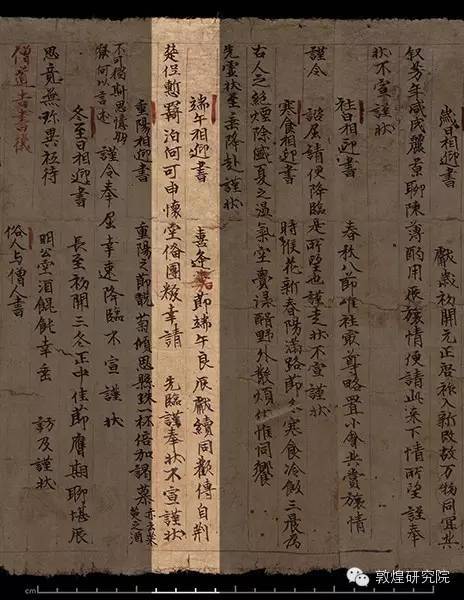 歲日相迎書　獻歲初開元正啓祚入新改故万物同宜共
叙芳年咸成麗景聊陳薄酌用展旅情便請此来下情所望謹奉
狀不宣謹狀
社日相迎書　春秋八節唯社最尊略置小會共賞旅情
謹令　諮屈請便降臨是所望也謹走狀不宣謹狀
寒食相迎書　時候花新春陽滿路節冬寒食冷飯三晨為
古人之絶煙除盛夏之温氣空賣渌醑野外散煩伏惟同饗
先靈狀至垂降赴謹狀
端午相迎書　喜逢嘉節端午良辰獻續同歡傳自荆
楚但慙羇泊何可申懷空俻團粽幸請　先臨謹奉狀不宣謹狀
重陽相迎書　重陽之節翫菊傾思懸珠一杯倍加謁慕亦云茱萸之酒
不可獨斯思憶朝寮何以言述　謹令奉屈幸速降臨不宣謹狀
冬至日相迎書　長至初開三冬正中佳節膺期聊堪展
思竟無珎異祗待　明公空酒餛飩幸垂　訪及謹狀
僧道吉書儀　俗人与僧人書
cm
敦煌研究院